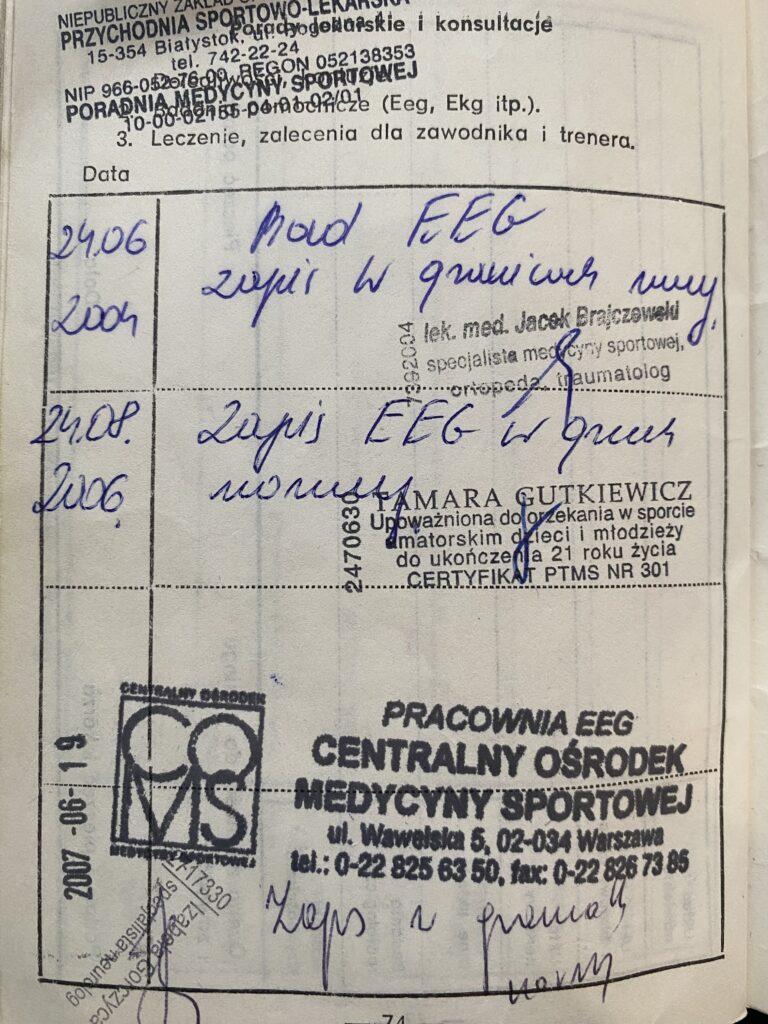 NIEPUBLICZNY ZAKŁAD
PRZYCHODNIA SPORTOWO-LEKARSKA
Porady lekarskie i konsultacje
15-354 Białystok, ul.
tel. 742-22-24
NIP 966-052-76-00, REGON 052138353
PORADNIA MEDYCYNY SPORTOWEJ
pomocnicze (Eeg, Ekg itp.).
10-00-02155-04-01-02/01
3. Leczenie, zalecenia dla zawodnika i trenera.
Data
24.06 EEG
zapis w granicach normy.
2004
7392004
lek. med. Jacek Brajczewski
specjalista medycyny sportowej,
ortopeda, traumatolog
24.08. Zapis EEG w granicach
2006. normy.
2470630
TAMARA GUTKIEWICZ
Upoważniona do orzekania w sporcie
amatorskim dzieci i młodzieży
do ukończenia 21 roku życia
CERTYFIKAT PTMS NR 301
CENTRALNY OŚRODEK
COMS
MEDYCYNY SPORTOWEJ
2007-06-19
PRACOWNIA EEG
CENTRALNY OŚRODEK
MEDYCYNY SPORTOWEJ
ul. Wawelska 5, 02-034 Warszawa
tel.: 0-22 825 63 50, fax: 0-22 826 73 85
Zapis w granicach
normy
17330
Izabela Gorczyca
specjalista neurolog
74